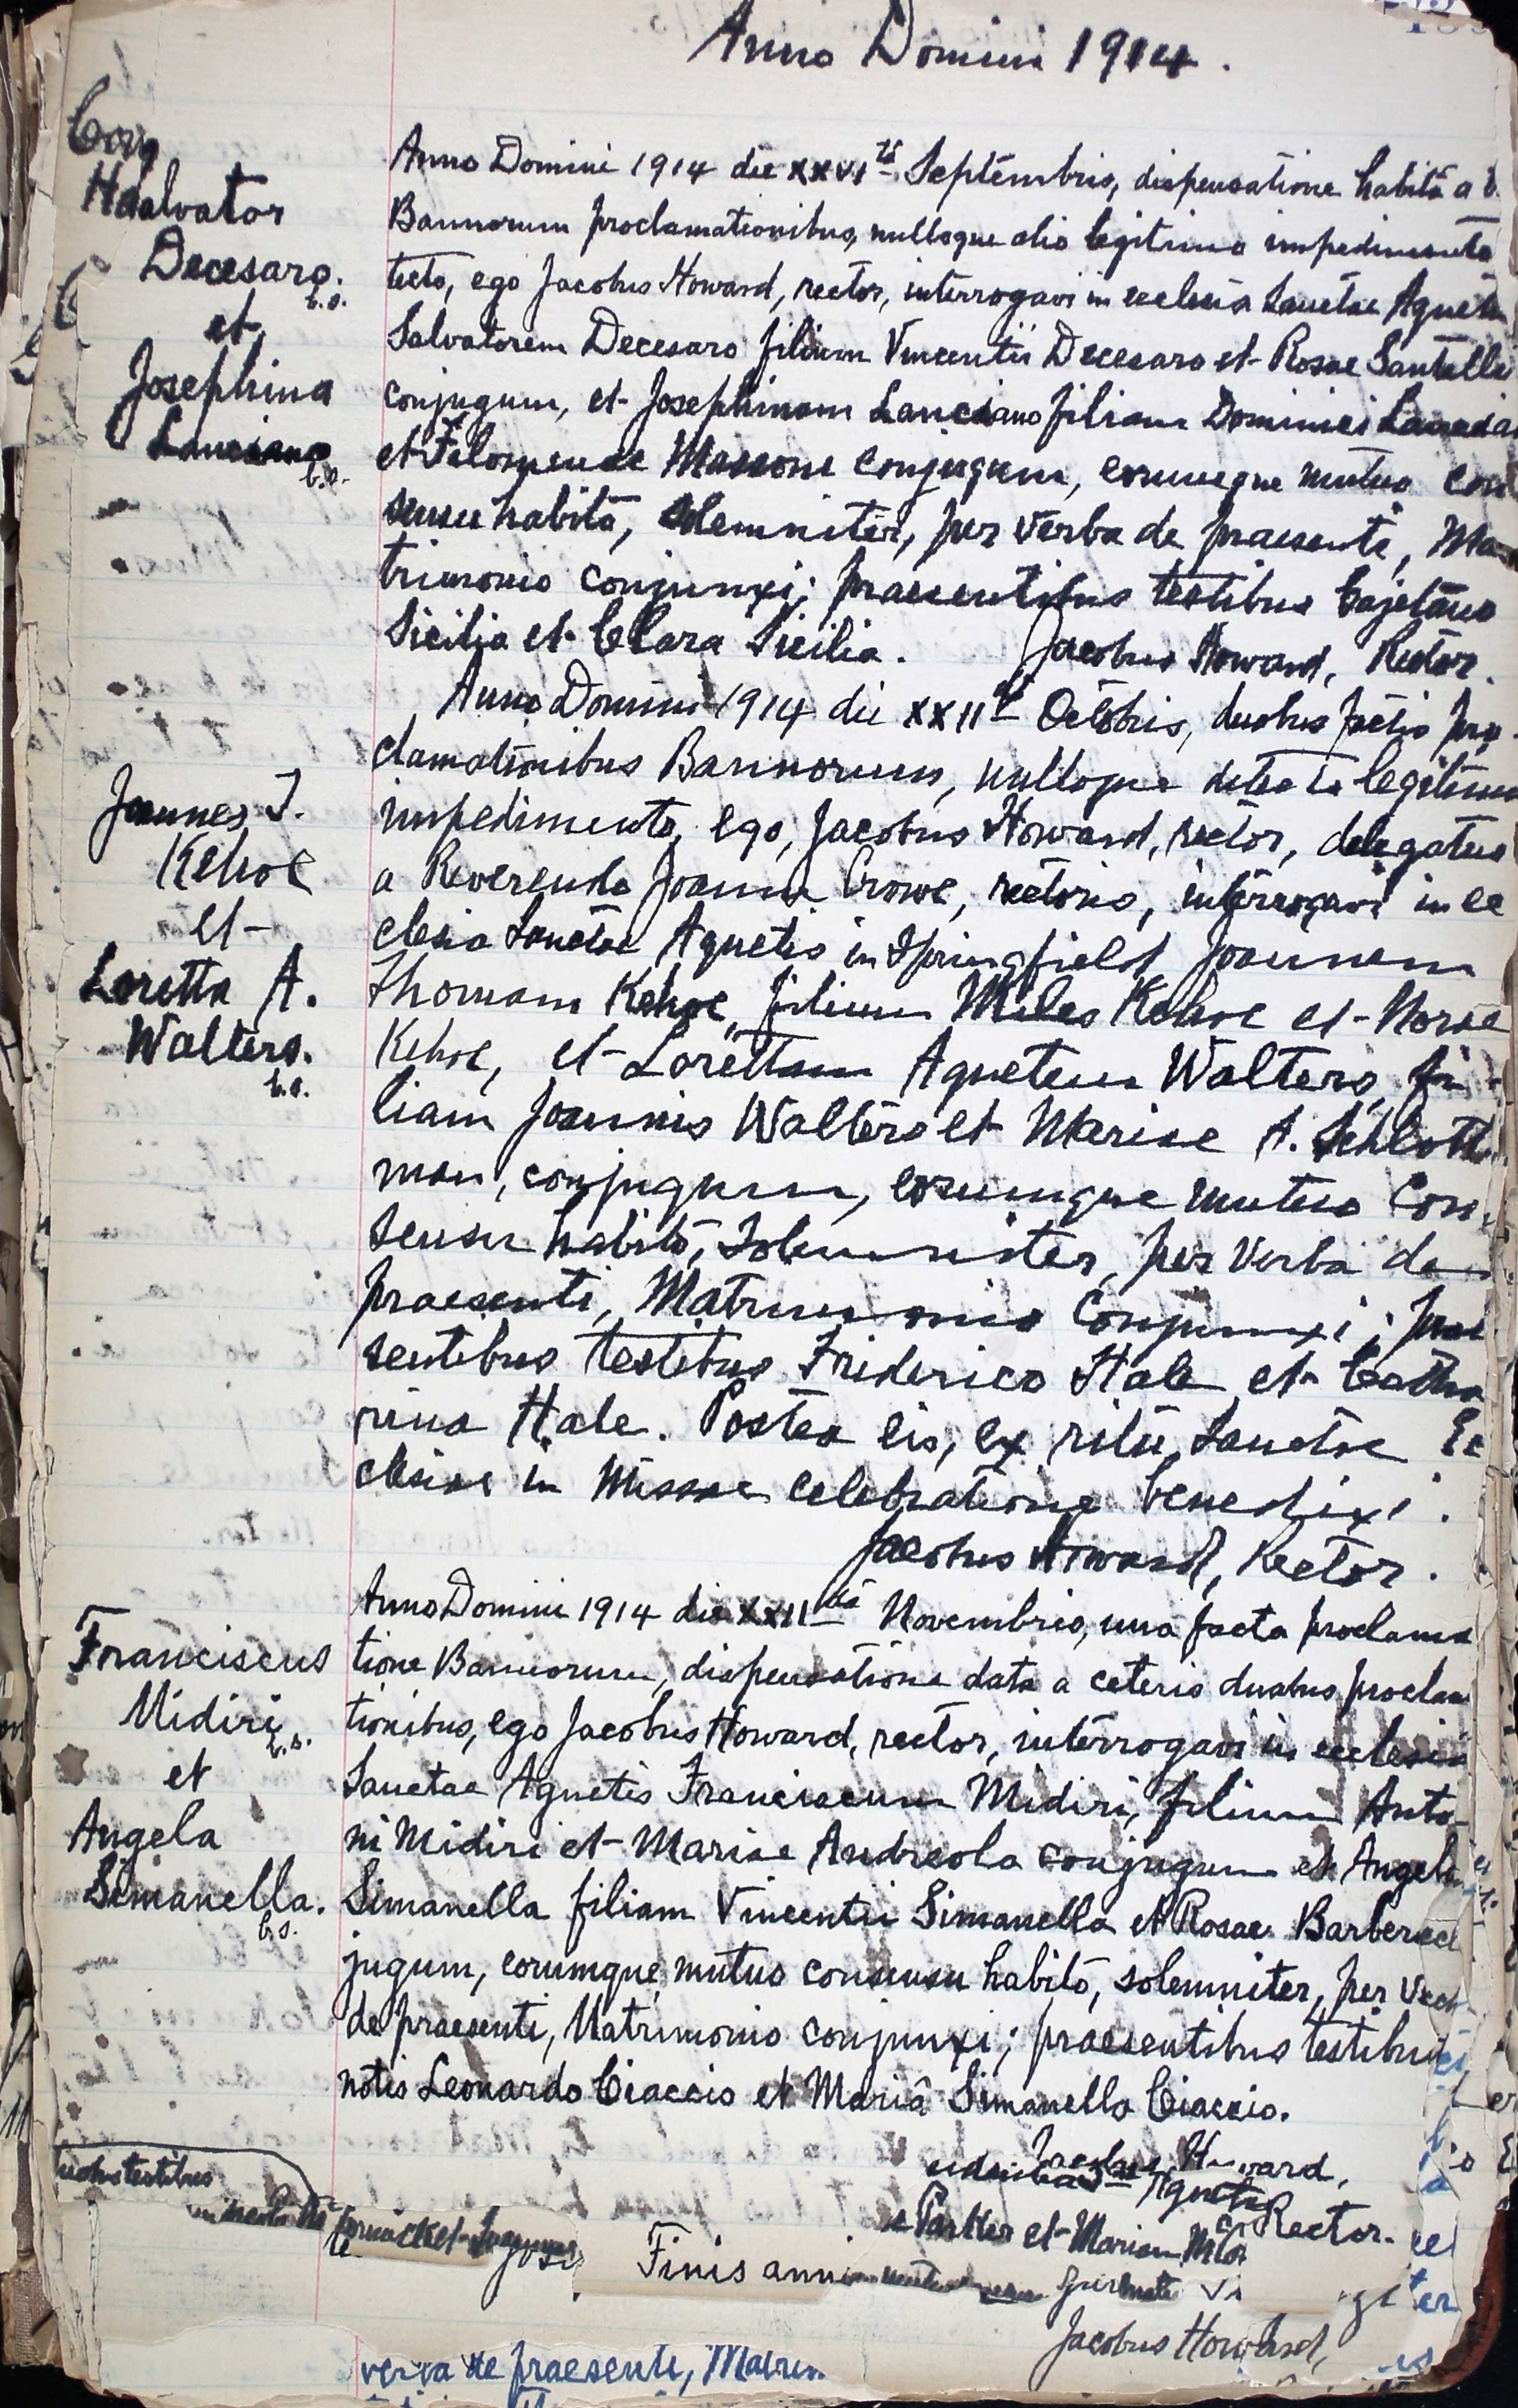 Anno Domini 1914.
Salvator
Decesaro.
b.s.
et
Josephina
Lanciano
b.s.
Anno Domini 1914 die XXVI Septembris, dispensatione habitâ a
Bannorum proclamationibus, nulloque alio legitimo impedimento
tecto, ego Jacobus Howard, rector, interrogavi in ecclesia Sanctae Agnetis
Salvatorem Decesaro filium Vincentii Decesaro et Rosae Santella
conjugum, et Josephinam Lanciano filiam Dominici Lancia
et Filomenae Massone conjugum, eorumque mutuo con
sensu habito, solemniter, per verba de praesenti, Ma
trimonio conjunxi; praesentibus testibus Cajetano
Sicilia et Clara Sicilia. Jacobus Howard, Rector.
Joannes T.
Kehoe
et
Loretta A.
Walters.
b.s.
Anno Domini 1914 die XXII Octobris, duobus factis pro
clamationibus Bannorum, nulloque detecto legitimo
impedimento, ego, Jacobus Howard, rector, delegatus
a Reverendo Joanne Crowe, rectoris, interrogavi in ec
clesia Sanctae Agnetis in Springfield Joannem
Thomam Kehoe, filium Miles Kehoe et Norae
Kehoe, et Lorettam Agnetem Walters, fi-
liam Joannis Walters et Mariae A. Schlott
man, conjugum, eorumque mutuo con-
sensu habito, Solemniter, per verba de
praesenti, Matrimonio Conjunxi; prae
sentibus testibus Friderico Hale et Catha
rina Hale. Postea eis, ex ritu Sanctae Ec
clesiae in Missae celebratione benedixi.
Jacobus Howard, Rector.
Franciscus
Midiri
b.s.
et
Angela
Simanella.
b.s.
Anno Domini 1914 die XXII Novembris, una facta proclama
tione Bannorum, dispensatione data a ceteris duabus proclam
tionibus, ego Jacobus Howard, rector, interrogavi in ecclesia
Sanctae Agnetis Franciscum Midiri, filium Anto-
ni Midiri et Mariae Andreola conjugum et Angelam
Simanella filiam Vincentii Simanella et Rosae Barbera
jugum, eorumque mutuo consensu habito, solemniter, per
de praesenti, Matrimonio conjunxi; praesentibus testibus
notis Leonardo Ciaccio et Mariâ Simanella Ciaccio.
Jacobus Howard,
Rector.
testibus
Parker et Mariam
Finis anni
Jacobus Howard,
verba de praesenti, Matrim